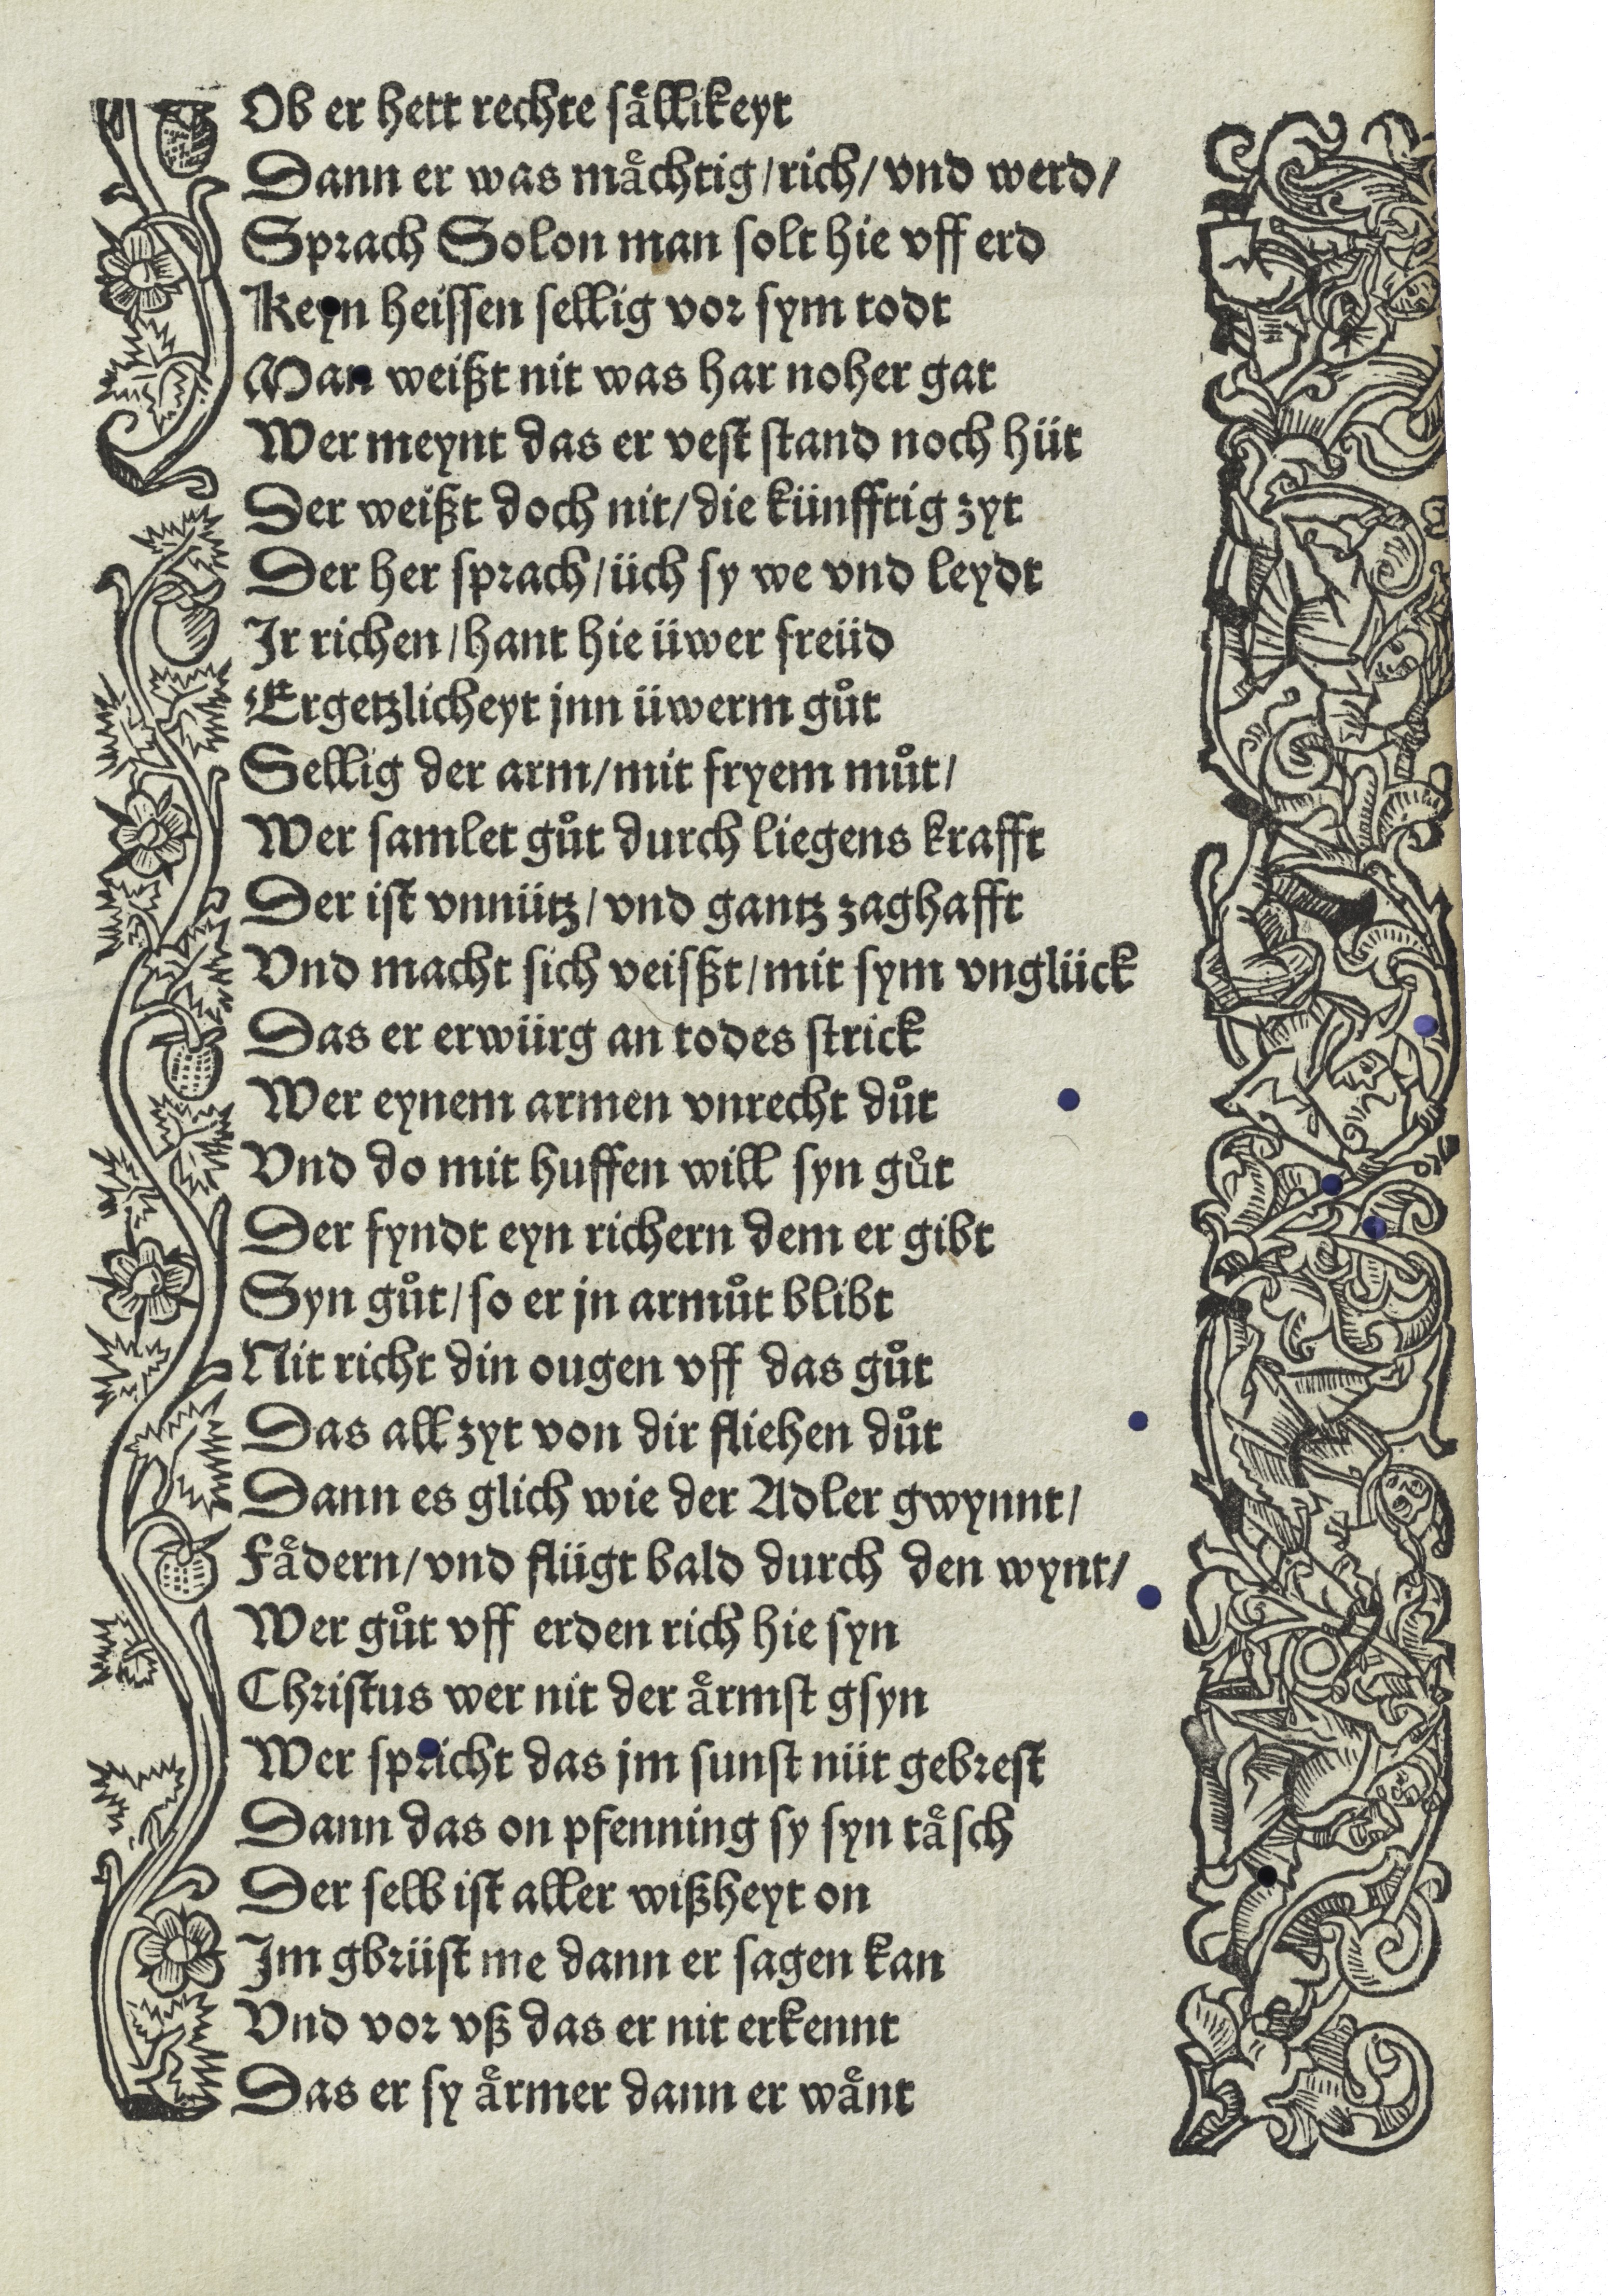 Ob er hett rechte saͤllikeyt
Dann er was maͤchtig/rich/vnd werd/
Sprach Solon man solt hie vff erd
Keyn heissen sellig vor sym todt
Man weißt nit was har noher gat
Wer meynt das er vest stand noch hüt
Der weißt doch nit/die künfftig zyt
Der her sprach/üch sy we vnd leydt
Jr richen/hant hie üwer freüd
Ergetzlicheyt jnn üwerm guͦt
Sellig der arm/mit fryem muͦt/
Wer samlet guͦt durch liegens krafft
Der ist vnnütz/vnd gantz zaghafft
Vnd macht sich veisßt/mit sym vnglück
Das er erwürg an todes strick
Wer eynem armen vnrecht duͦt
Vnd do mit huffen will syn guͦt
Der fyndt eyn richern dem er gibt
Syn guͦt/so er jn armuͦt blibt
Nit richt din ougen vff das guͦt
Das all zyt von dir fliehen duͦt
Dann es glich wie der Adler gwynnt/
Faͤdern/vnd flügt bald durch den wynt/
Wer guͦt vff erden rich hie syn
Christus wer nit der aͤrmst gsyn
Wer spricht das jm sunst nüt gebrest
Dann das on pfenning sy syn taͤsch
Der selb ist aller wißheyt on
Jm gbrüst me dann er sagen kan
Vnd vor vß das er nit erkennt
Das er sy aͤrmer dann er waͤnt